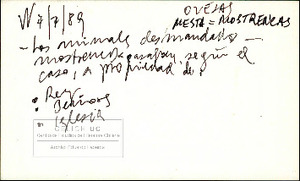 OVEJAS
V 7/7/89 MESTA = MOSTRENCAS
- Los animales desmandados -
mostrencos pasaban, según el
caso, a propiedad de:
• Rey
• Señores
• Iglesia